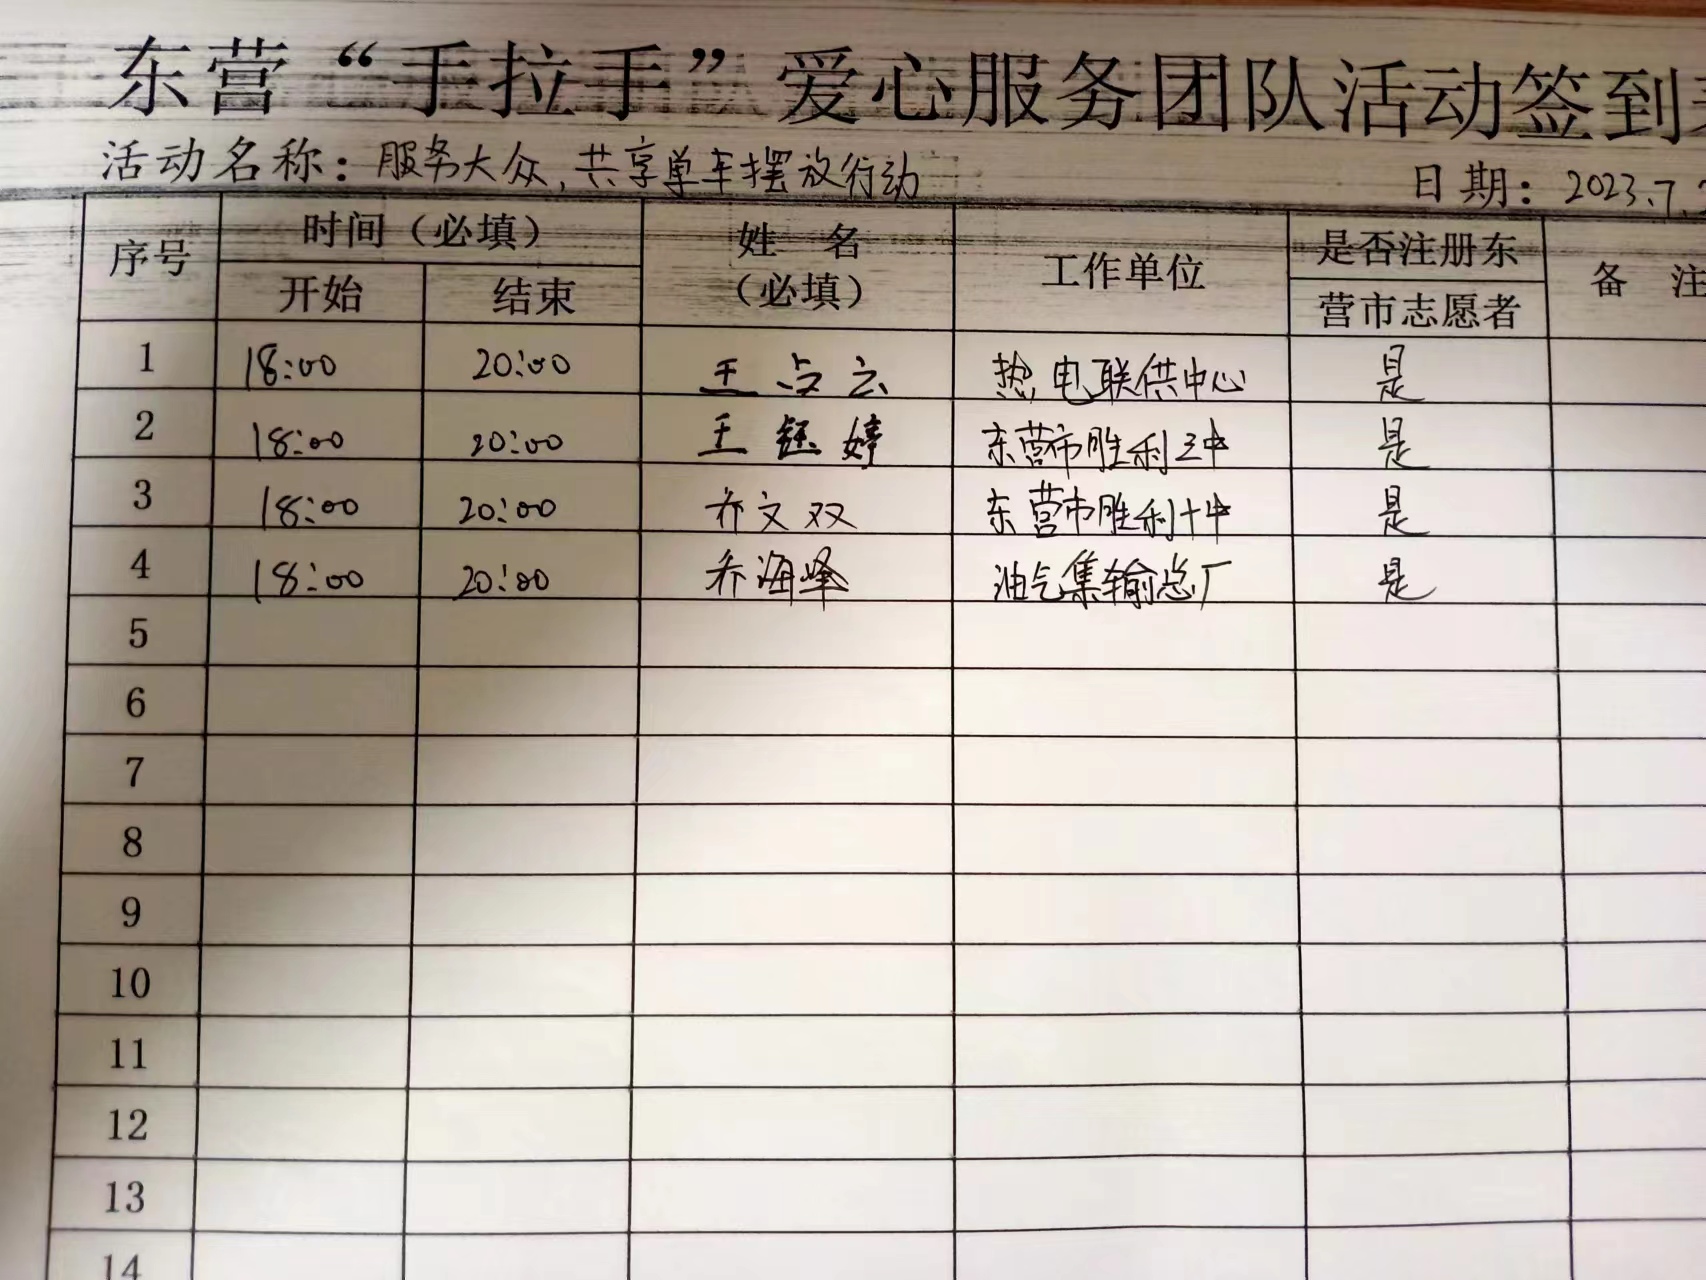 东营“手拉手”爱心服务团队活动签到
活动名称：服务大众,共享单车摆放行动 日期：2023.7.
序号 时间（必填） 姓 名（必填） 工作单位 是否注册东营市志愿者 备 注
开始 结束
1 18:00 20:00 王占云 热电联供中心 是
2 18:00 20:00 王钰婷 东营市胜利三中 是
3 18:00 20:00 乔文双 东营市胜利十中 是
4 18:00 20:00 乔海峰 油气集输总厂 是
5
6
7
8
9
10
11
12
13
14